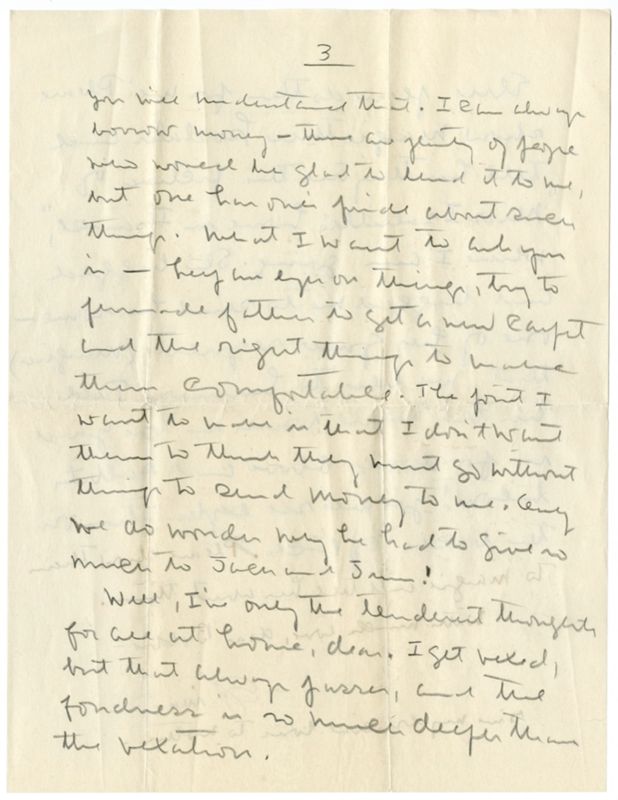 3
you will understand that. I can always
borrow money – there are plenty of people
who would be glad to lend it to me,
but one has one's pride about such
things. What I want to ask you
is – keep an eye on things, try to
persuade father to get a new carpet
and the right things to make
them comfortable. The point I
want to make is that I don't want
them to think they must go without
things to send money to me. Only
we do wonder why he had to give so
much to Jack and Jim!
Well, I've only the tenderest thoughts
for all at home, dear. I get vexed,
but that always passes, and the
fondness is so much deeper than
the vexation.